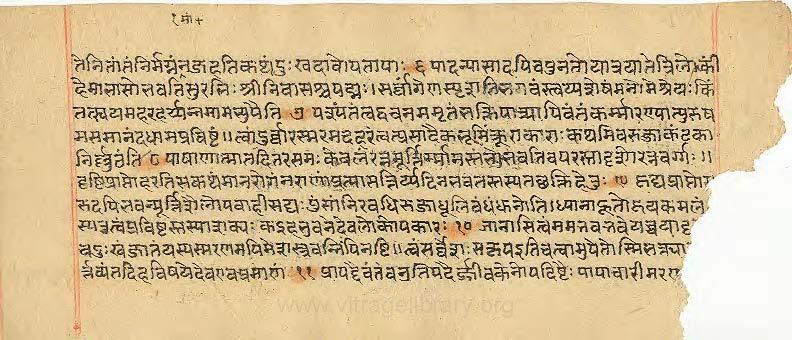 १ मा॰+
तेनितांतंनिर्मग्नंनजहतिकथंदुःखदावोपतापाः ६ पादन्यासादपिवपुनतोयात्रयातेत्रिलोकीं
हेमाभासोभवतिसुरभिः श्रीनिवासश्चपद्मः॥सर्वांगेणस्पृशतिभगवंस्त्वय्यशेषंमनोमेश्रेयः किं
तत्स्वयमहरहर्य्यन्नमामभ्युपैति ७ पश्यंतंत्वद्वचनममृतंभक्तिपात्र्यापिबंतंकर्म्मारण्यात्पुरुष
मसमानंदधामप्रविष्टं॥त्वांदुर्व्वारस्मरमदहरंत्वत्प्रसादैकभूमिंक्रूराकाराः कथमिवरुजाकंटका
निर्लुठंति ८ पाषाणात्मातदितरसमः केवलंरत्नमूर्त्तिर्म्मानस्तंभोभवतिचपरस्तादृशोरत्नवर्गः॥
दृष्टिप्राप्तोहरतिसकथंमानरोगंनराणांप्रत्यासत्तिर्य्यदिनभवतस्तस्यतछक्तिहेतुः ९ हृद्यप्राप्तोम
रुदपिभवन्मूर्त्तिशैलोपवाहीसद्यः पुंसांनिरवधिरुजाधूलिबंधंधुनोति॥ध्यानाहूतोहृदयकमलं
स्यत्रत्वंप्रविष्टस्तस्याशक्यः कइहभुवनेदेवलोकोपकारः १० जानासित्वंममभवभवेयच्चयादृ
चदुःखंजातंयस्यस्मरणमपिमेशस्त्रवन्निष्पिनष्टि॥त्वंसर्व्वेशः सकृपइतिचत्वामुपेतोस्मिभक्त्या
र्त्तव्यंतदिहविषयेदेवएवप्रमाणं॥ ११ प्रापद्दैवंतवनुतिपदैर्ज्जीवकेनोपदिष्टैः पापाचारीमरण
www.vitragelibrary.org